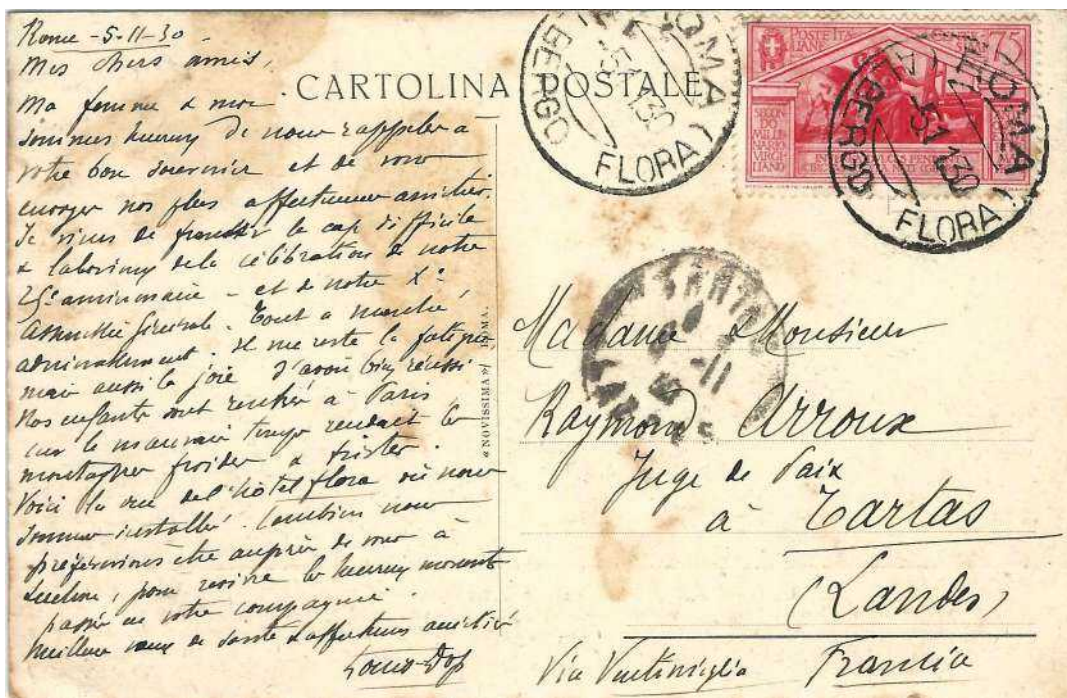 Rome - 5-11-30
Mes chers amis,
Ma femme & moi
sommes heureux de nous rappeler à
votre bon souvenir et de vous
envoyer nos plus affectueuses amitiés.
Je viens de franchir le cap difficile
& laborieux de la célébration de notre
25e anniversaire - et de notre Xe
Assemblée Générale. Tout a marché
admirablement. Il me reste la fatigue,
mais aussi la joie d'avoir bien réussi.
Nos enfants sont rentrés à Paris
car le mauvais temps rendait les
montagnes froides & tristes.
Voici la vue de l'hôtel flora où nous
sommes installés. Combien nous
préférerions être auprès de vous à
Luchon, pour revivre les heureux moments
passés en votre compagnie.
Meilleurs vœux de santé & affectueuses amitiés
Louis-Dop
CARTOLINA POSTALE
«NOVISSIMA» ROMA.
ROMA (
ALBERGO
FLORA)
POSTE ITALIANE
75
SECONDO MILLENARIO VIRGILIANO
ROMA (
ALBERGO
FLORA)
Madame & Monsieur
Raymond Arroux
Juge de Paix
à Tartas
(Landes)
Via Ventimiglia Francia